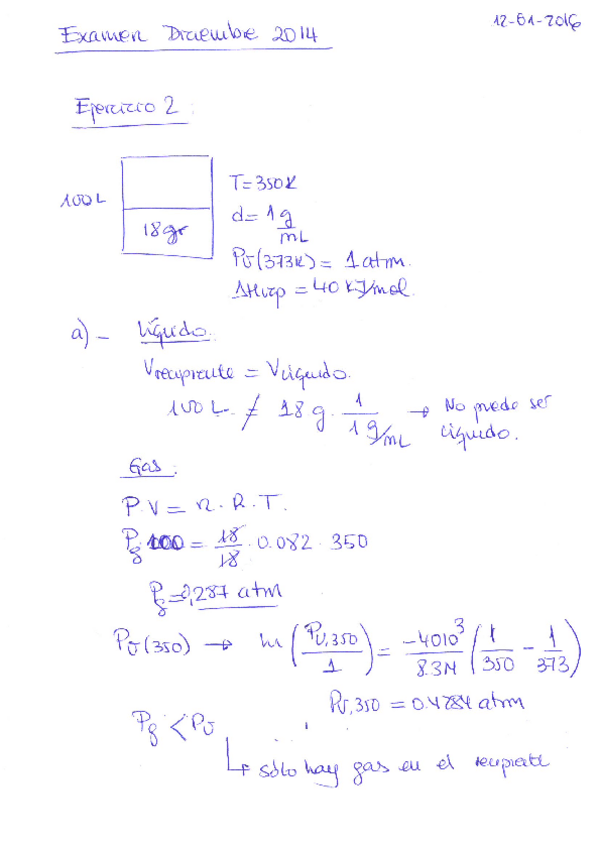 Examen Diciembre 2014
12-01-2016
Ejercicio 2:
100 L
18gr
T=350K
d= 1 g/mL
Pv(373K) = 1 atm.
ΔHvap = 40 KJ/mol.
a) - Líquido.
Vrecipiente = Vlíquido.
100 L. ≠ 18 g · 1/(1 g/mL) → No puede ser líquido.
Gas:
P.V = n. R. T.
Pg 100 = 18/18 · 0.082 · 350
Pg=0,287 atm
Pv(350) → ln(Pv,350/1) = -40·10³/8.314 (1/350 - 1/373)
Pv,350 = 0.4284 atm
Pg < Pv
↳ sólo hay gas en el recipiente